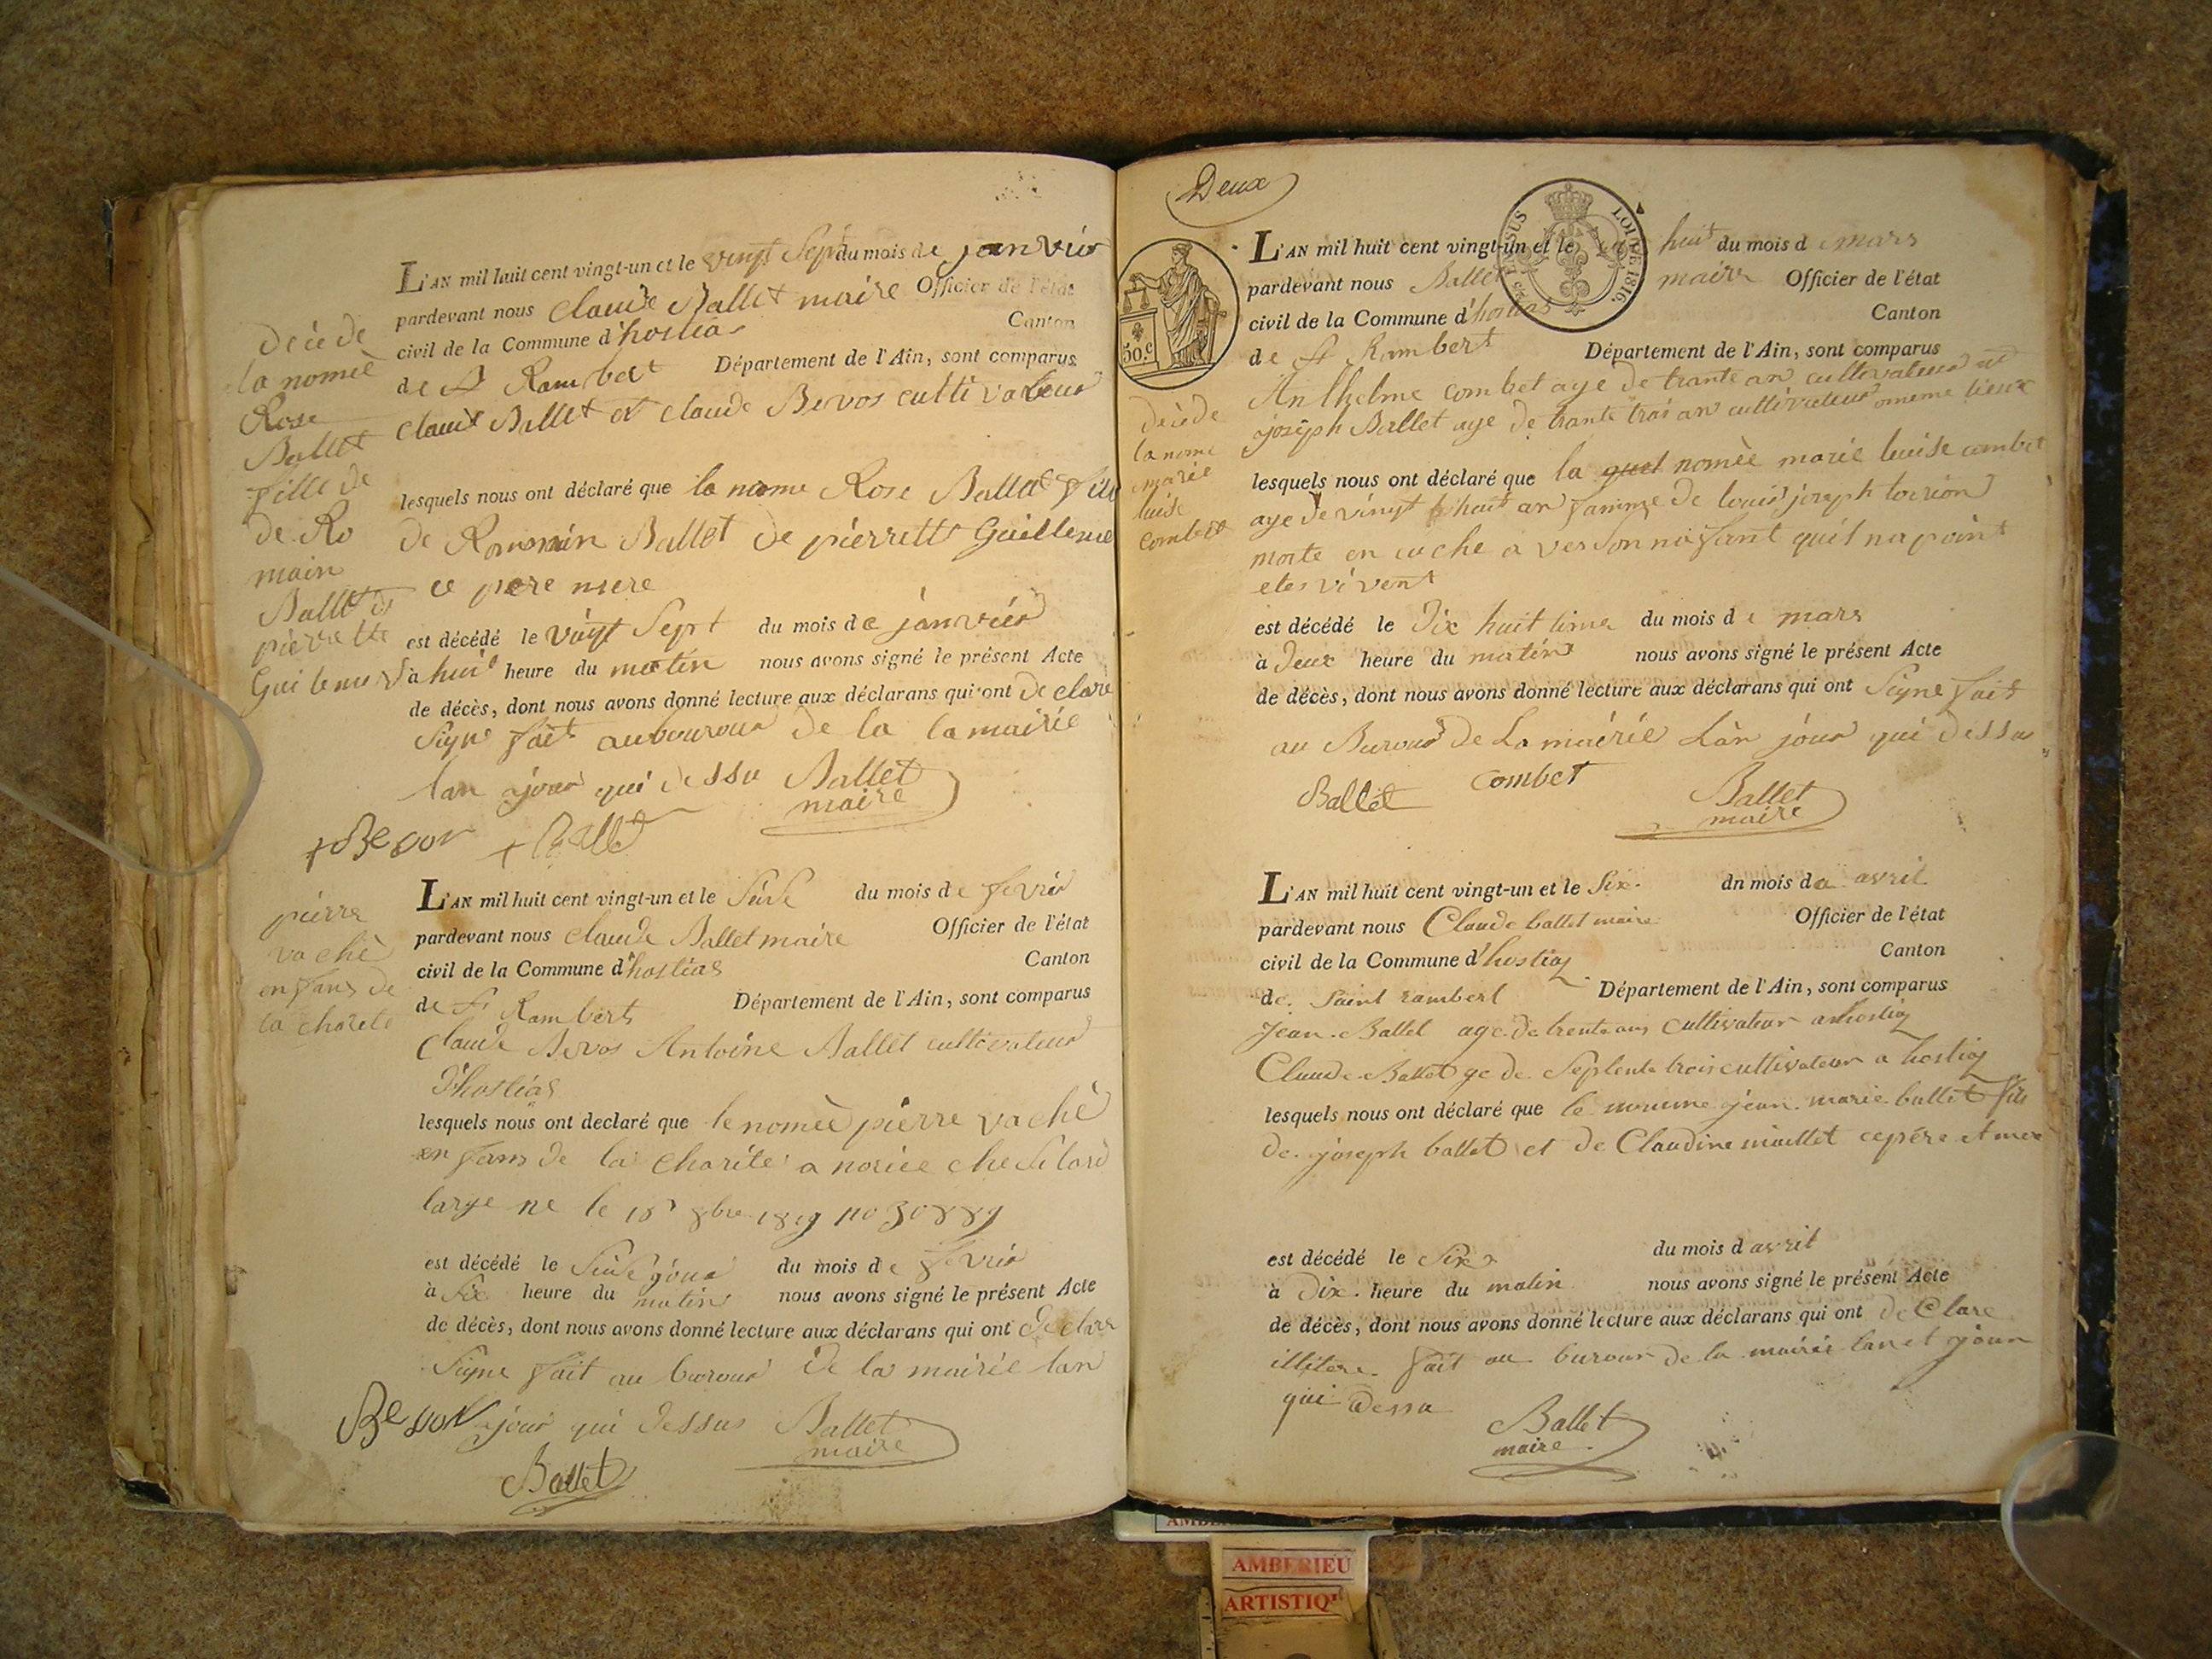 décéde
la nomèe
Rose
Ballet
fille de
de Ro
main
Ballet
pierrette
L'AN mil huit cent vingt-un et le vingt Sept du mois de janvier
pardevant nous Claude Ballet maire Officier de l'état
civil de la Commune d'hostias Canton
de St Rambert Département de l'Ain, sont comparus
Claude Ballet et Claude cultivateur
lesquels nous ont déclaré que la nome Rose Ballet fille
de Romain Ballet de pierrette Guilleme
ce pere mere
est décédé le vingt Sept du mois de janvier
à huit heure du matin nous avons signé le présent Acte
de décès, dont nous avons donné lecture aux déclarans qui ont de clare
Signe fait au de la la mairie
lan jour qui dessu Ballet
maire
pierre
vachè
en fans de
la charite
L'AN mil huit cent vingt-un et le du mois de
pardevant nous claude Ballet maire Officier de l'état
civil de la Commune d'hostias Canton
de St Rambert Département de l'Ain, sont comparus
Claude Antoine Ballet cultivateur
d'hostias
lesquels nous ont declaré que le nomèe pierre vachè
en fans de la charite a
large ne le 18 8bre 1819 no
est décédé le jour du mois de
à Six heure du matin nous avons signé le présent Acte
de décès, dont nous avons donné lecture aux déclarans qui ont de clare
Signe fait au de la mairie lan
jour qui dessus Ballet
maire
Ballet
Deux
50 c
LOI DE 1816.
L'AN mil huit cent vingt-un et le huit du mois de mars
pardevant nous Ballet maire Officier de l'état
civil de la Commune d'hostias Canton
de St Rambert Département de l'Ain, sont comparus
Anthelme combet aye de trante an cultivateur et
joseph Ballet aye de trante trois an cultivateur
décéde
la nome
marie
luise
combet
lesquels nous ont déclaré que la quel nomèe marie luise combet
aye de vingt huit an famme de louis joseph
morte en quil na point
etes vivent
est décédé le Dix huit du mois de mars
à deux heure du matin nous avons signé le présent Acte
de décès, dont nous avons donné lecture aux déclarans qui ont Signe fait
au de La mairie L'an jour qui dessu
Ballet combet Ballet
maire
L'AN mil huit cent vingt-un et le Six dn mois de avril
pardevant nous Claude ballet maire Officier de l'état
civil de la Commune d'hostias Canton
de Saint rambert Département de l'Ain, sont comparus
Jean Ballet age de trente ans Cultivateur a hostias
Claude Ballet ge de Septente trois cultivateur a hostias
lesquels nous ont déclaré que le nomme jean marie ballet fils
de joseph ballet et de Claudine maillet ce pére et mere
est décédé le Six du mois d avril
à dix heure du matin nous avons signé le présent Acte
de décès, dont nous avons donné lecture aux déclarans qui ont de Clare
fait au de la mairie lan et jour
qui dessu
Ballet
maire
AMBERIEU
ARTISTIQ